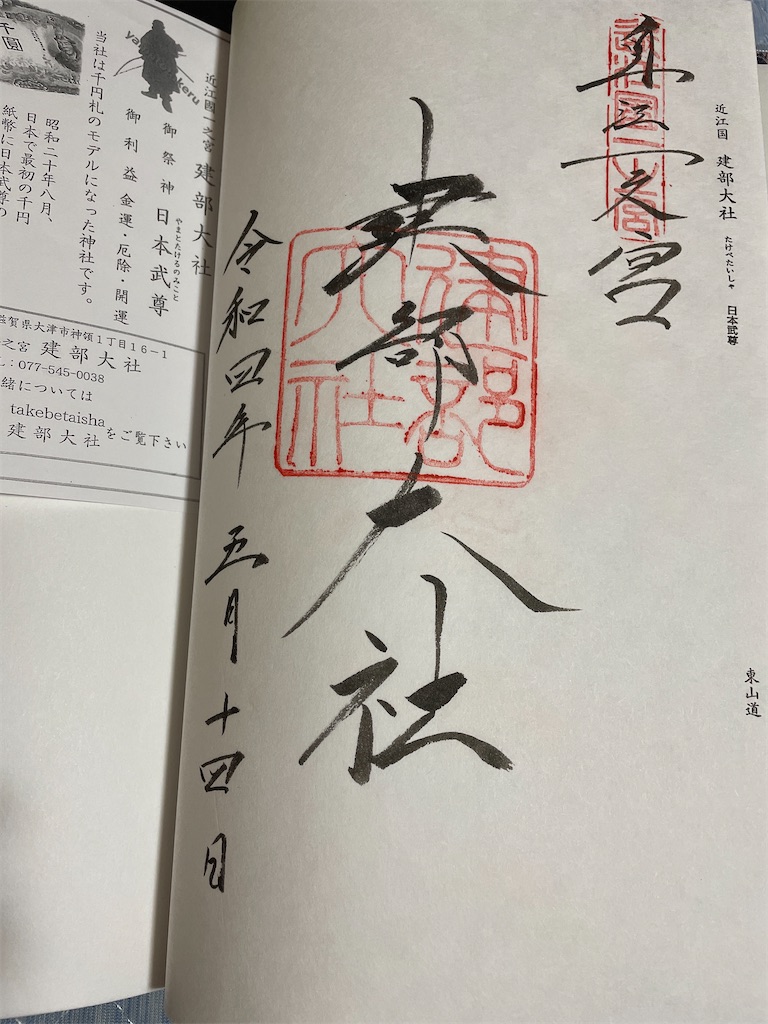 近江国 建部大社 たけべたいしゃ 日本武尊
東山道
近江國一之宮
江一之宮
建部大社
建部大社
令和四年 五月十四日
近江國一之宮 建部大社
御祭神 日本武尊
やまとたけるのみこと
御利益 金運・厄除・開運
当社は千円札のモデルになった神社です。
昭和二十年八月、
日本で最初の千円
紙幣に日本武尊の
千圓
滋賀県大津市神領1丁目16-1
之宮 建部大社
:077-545-0038
緒については
takebetaisha
建部大社をご覧下さい